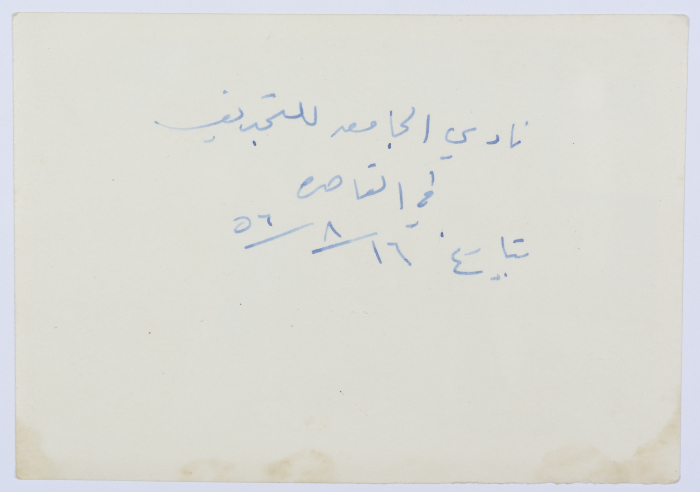 نادي الجامعه للتجديف
في القاهره
بتاريخ ١٦/٨/٥٦